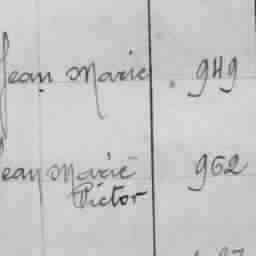 Jean Marie . 949
Jean Marie 962
Victor